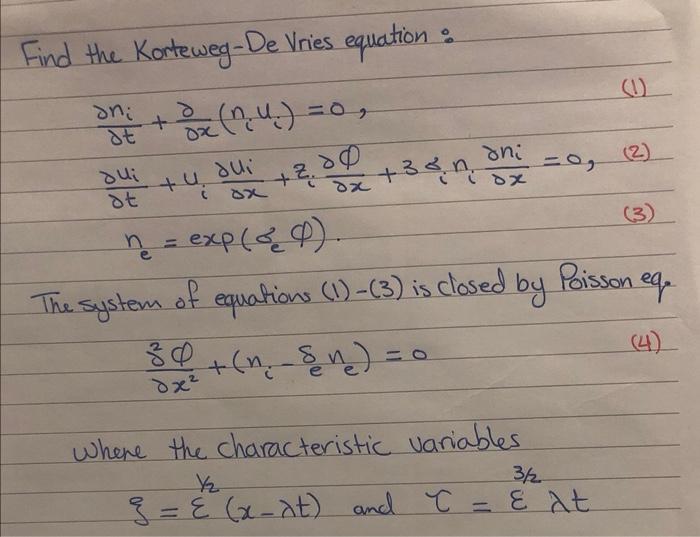 Find the Korteweg-De Vries equation :
∂nᵢ/∂t + ∂/∂x (nᵢ uᵢ) = 0, (1)
∂uᵢ/∂t + uᵢ ∂uᵢ/∂x + zᵢ ∂φ/∂x + 3 σᵢ nᵢ ∂nᵢ/∂x = 0, (2)
nₑ = exp(σₑ φ). (3)
The system of equations (1)-(3) is closed by Poisson eq.
∂²φ/∂x² + (nᵢ - δₑ nₑ) = 0 (4)
where the characteristic variables
ξ = ε^{1/2} (x-λt) and τ = ε^{3/2} λt